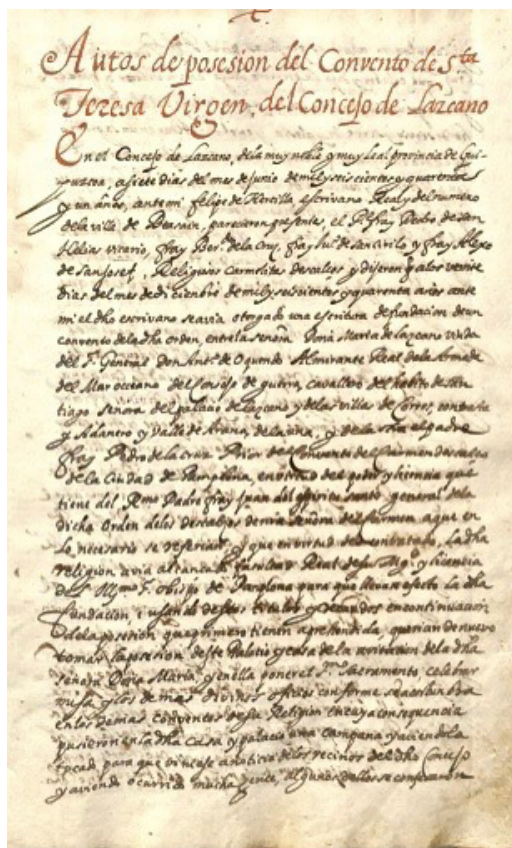 Autos de posesion del Convento de Sta
Teresa Virgen, del Concejo de Lazcano
En el Concejo de Lazcano, dela muy noble y muy Leal provincia de Gui-
puzcoa, a siete dias del mes de Junio de mil y seiscientos y quarenta
y un años, ante mi, felipe de Hercilla, escrivano Real y del numero
dela villa de Beasain, parecieron presente, el Pe fray Pedro de san
Helias vicario, fray Berdo dela Cruz, fray Jul. de san Cirilo y fray Alexo
de San Josef, Religiosos carmelitas descalços y dixeron q a los veinte
dias del mes de diciembre de mil y seiscientos y quarenta años ante
mi el dho escrivano se avia otorgado una escritura de fundacion de un
convento dela dha orden, entre la señora Doña Maria de lazcano viuda
del Sr General Don Anto de Oquendo Almirante Real dela Armada
del Mar occeano del Consejo de guerra, cavallero del habito de san
tiago señora del palacio de lazcano y delas villas de Corres, contrasta
y Aldanero y Valle de Arana, dela una, y dela otra el padre
fray Pedro dela Cruz Prior del Convento del Carmen descalço
de la Ciudad de Pamplona, en virtud del poder y licencia que
tiene del Rmo Padre fray Juan del espiritu santo general dela
dicha Orden delos descalços de nra señora del Carmen, a que en
lo necesario se referian, y que en virtud de dho contrato, la dha
religion avia alcançado facultad Real de su Mgd. y licencia
del Illmo Sr. obispo de Pamplona para que llevan efecto la dha
fundacion, i usando de estos titulos y recaudos en continuacion
dela posesion que primero tienen aprehendida, querian de nuevo
tomar la posesion deste Palacio y casa dela avitacion dela dha
señora Doña Maria, y en ella poner el Smo Sacramento, celebrar
misa y los demas divinos oficios conforme se acostumbra
en los demas conventos de su Religion en cuya consequencia
pusieron en la dha casa y palacio una campana y aciendola
tocar para que viniese a noticia delos vecinos del dho Concejo
y aviendo ocurrido mucha gente, algunos dellos se confesaron